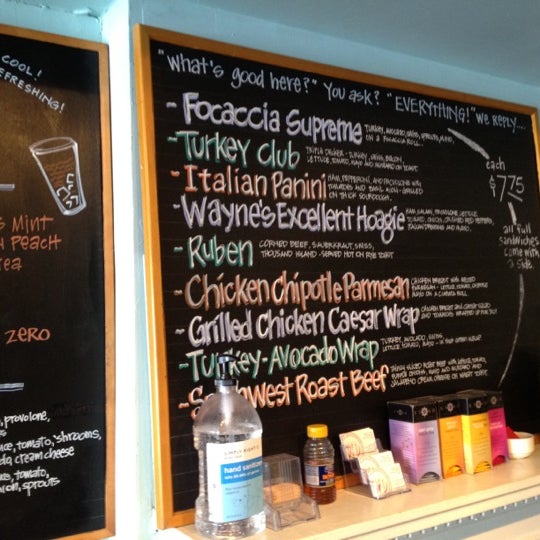 COOL!
REFRESHING!
MINT
PEACH
TEA
ZERO
, provolone,
tomato, 'shrooms,
cream cheese
tomato,
sprouts
"What's good here?" You ask? "EVERYTHING!" We reply....
- Focaccia Supreme TURKEY, AVOCADO, SWISS, SPROUTS, MAYO,
ON A FOCACCIA ROLL...
- Turkey Club TRIPLE DECKER - TURKEY, SWISS, BACON,
LETTUCE, TOMATO, MAYO AND MUSTARD ON TOAST
- Italian Panini HAM, PEPPERONI, AND PROVOLONE WITH
TOMATOES AND BASIL AIOLI - GRILLED
ON THICK SOURDOUGH.
- Wayne's Excellent Hoagie HAM, SALAMI, PROVOLONE, LETTUCE
TOMATO, ONION, CRUSHED RED PEPPERS,
AND MAYO
- Ruben CORNED BEEF, SAUERKRAUT, SWISS,
THOUSAND ISLAND - SERVED HOT ON RYE TOAST
- Chicken Chipotle Parmesan CHICKEN BREAST WITH MELTED
PARMESAN - LETTUCE, TOMATO, CHIPOTLE
MAYO ON A CIABATTA ROLL
- Grilled Chicken Caesar Wrap CHICKEN BREAST AND CAESAR SALAD
AND TOMATOES WRAPPED UP FOR YOU
- Turkey-Avocado Wrap TURKEY, AVOCADO, SWISS,
LETTUCE, TOMATO, MAYO
- Southwest Roast Beef THINLY SLICED ROAST BEEF WITH LETTUCE, TOMATO,
MAYO AND MUSTARD AND
JALAPENO CREAM CHEESE ON WHEAT TOAST
each
$7.75
all full
sandwiches
come with
a side.
hand sanitizer